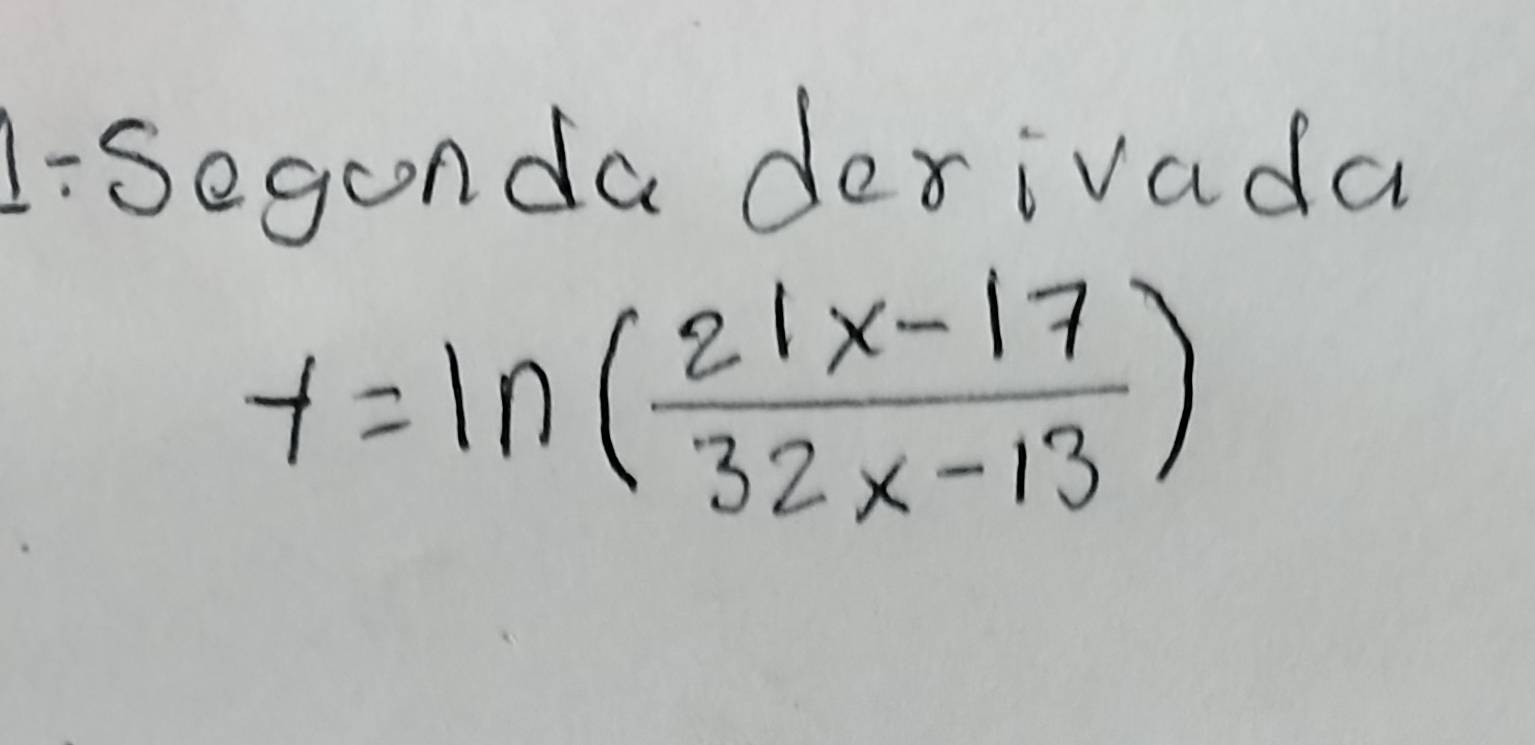 1-Segunda derivada
y=ln(21x-17/32x-13)